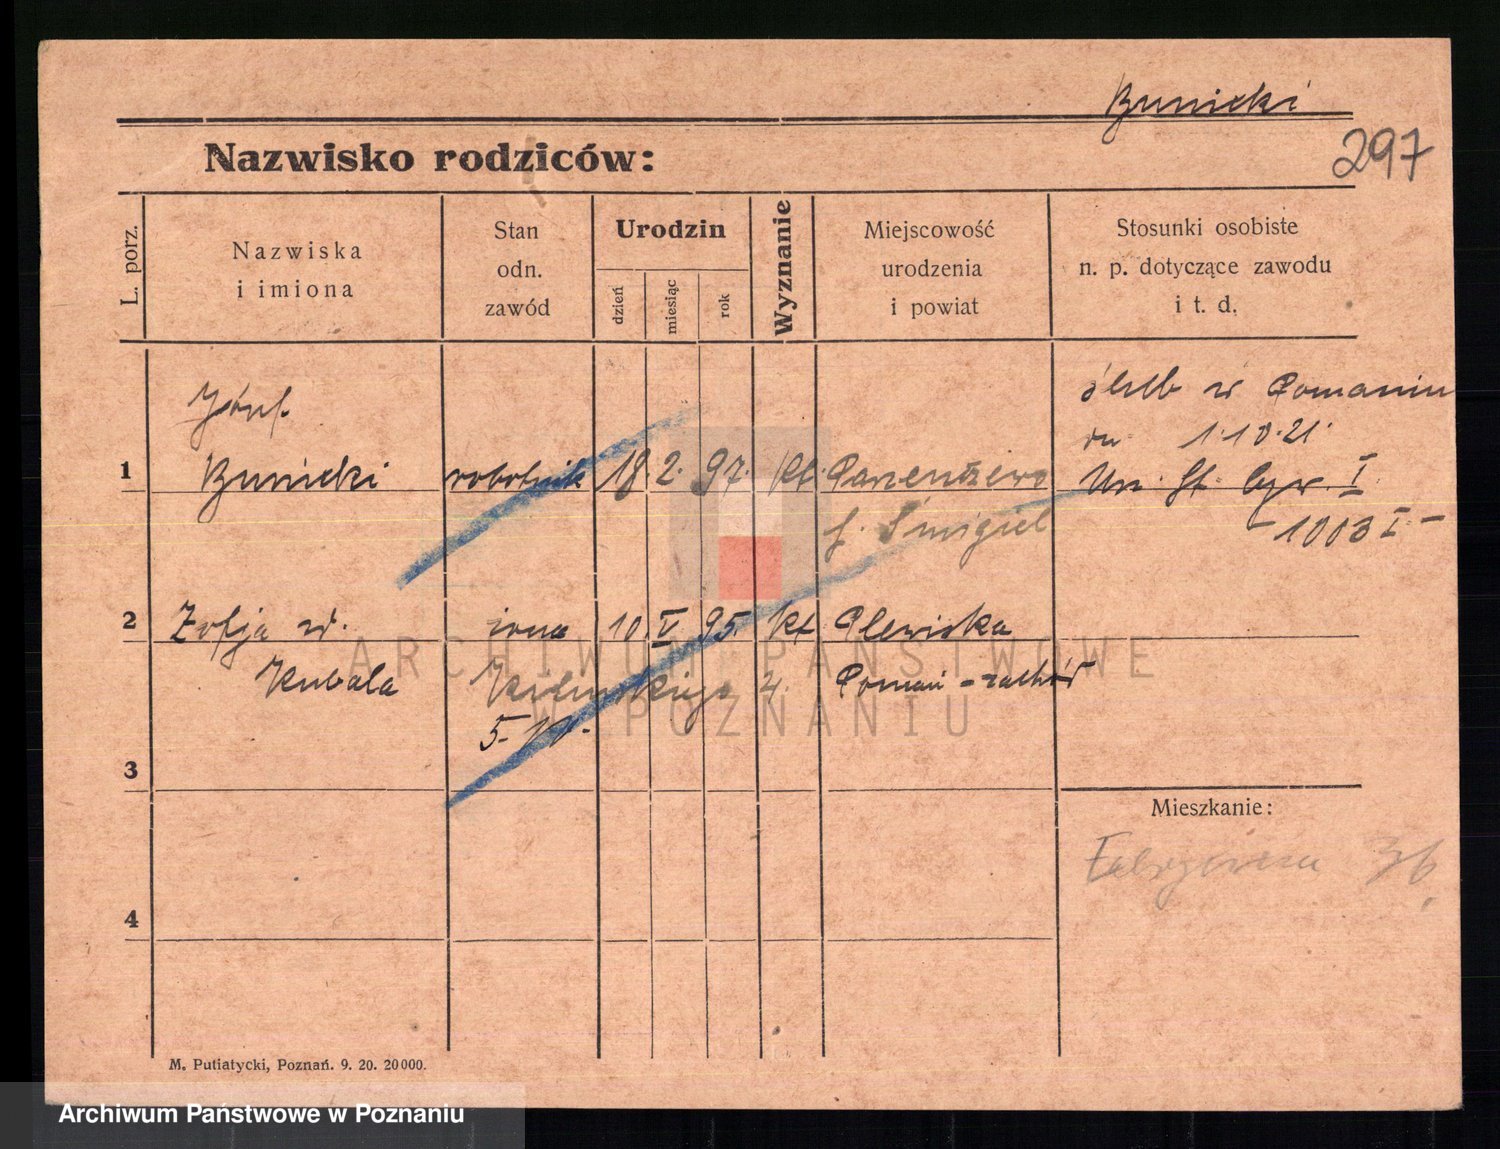 Bunicki
297
Nazwisko rodziców:
L. porz.
Nazwiska
i imiona
Stan
odn.
zawód
Urodzin
dzień
miesiąc
rok
Wyznanie
Miejscowość
urodzenia
i powiat
Stosunki osobiste
n. p. dotyczące zawodu
i t. d.
1
Józef
Bunicki
robotnik
18. 2. 97.
kt.
Parzenczewo
Śmigiel
ślub w Poznaniu
dn. 1.10.21.
I
- 1003 I -
2
Zofja
Kubala
żona
10. V 95.
kt.
Plewiska
Poznań - zachód
3
4
Mieszkanie:
36
M. Putiatycki, Poznań. 9. 20. 20000.
ARCHIWUM PAŃSTWOWE
W POZNANIU
Archiwum Państwowe w Poznaniu